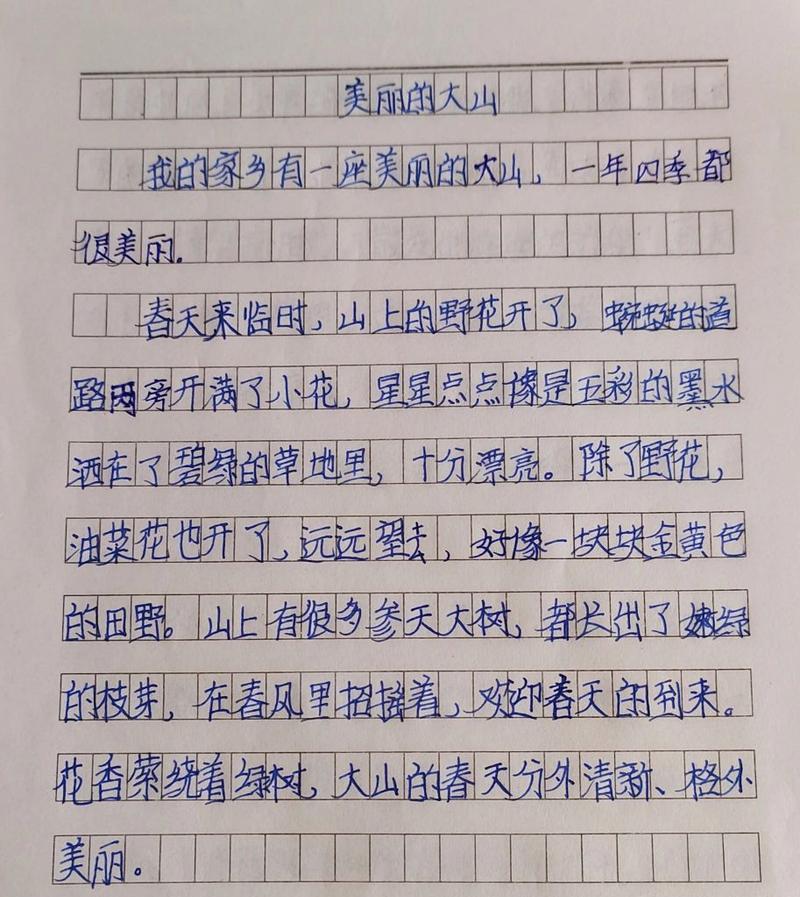 美丽的大山
我的家乡有一座美丽的大山，一年四季都
很美丽.
春天来临时，山上的野花开了，蜿蜒的道
路两旁开满了小花，星星点点像是五彩的墨水
洒在了碧绿的草地里，十分漂亮。除了野花，
油菜花也开了，远远望去，好像一块块金黄色
的田野。山上有很多参天大树，都长出了嫩绿
的枝芽，在春风里招摇着，欢迎春天的到来。
花香萦绕着绿树，大山的春天分外清新、格外
美丽。